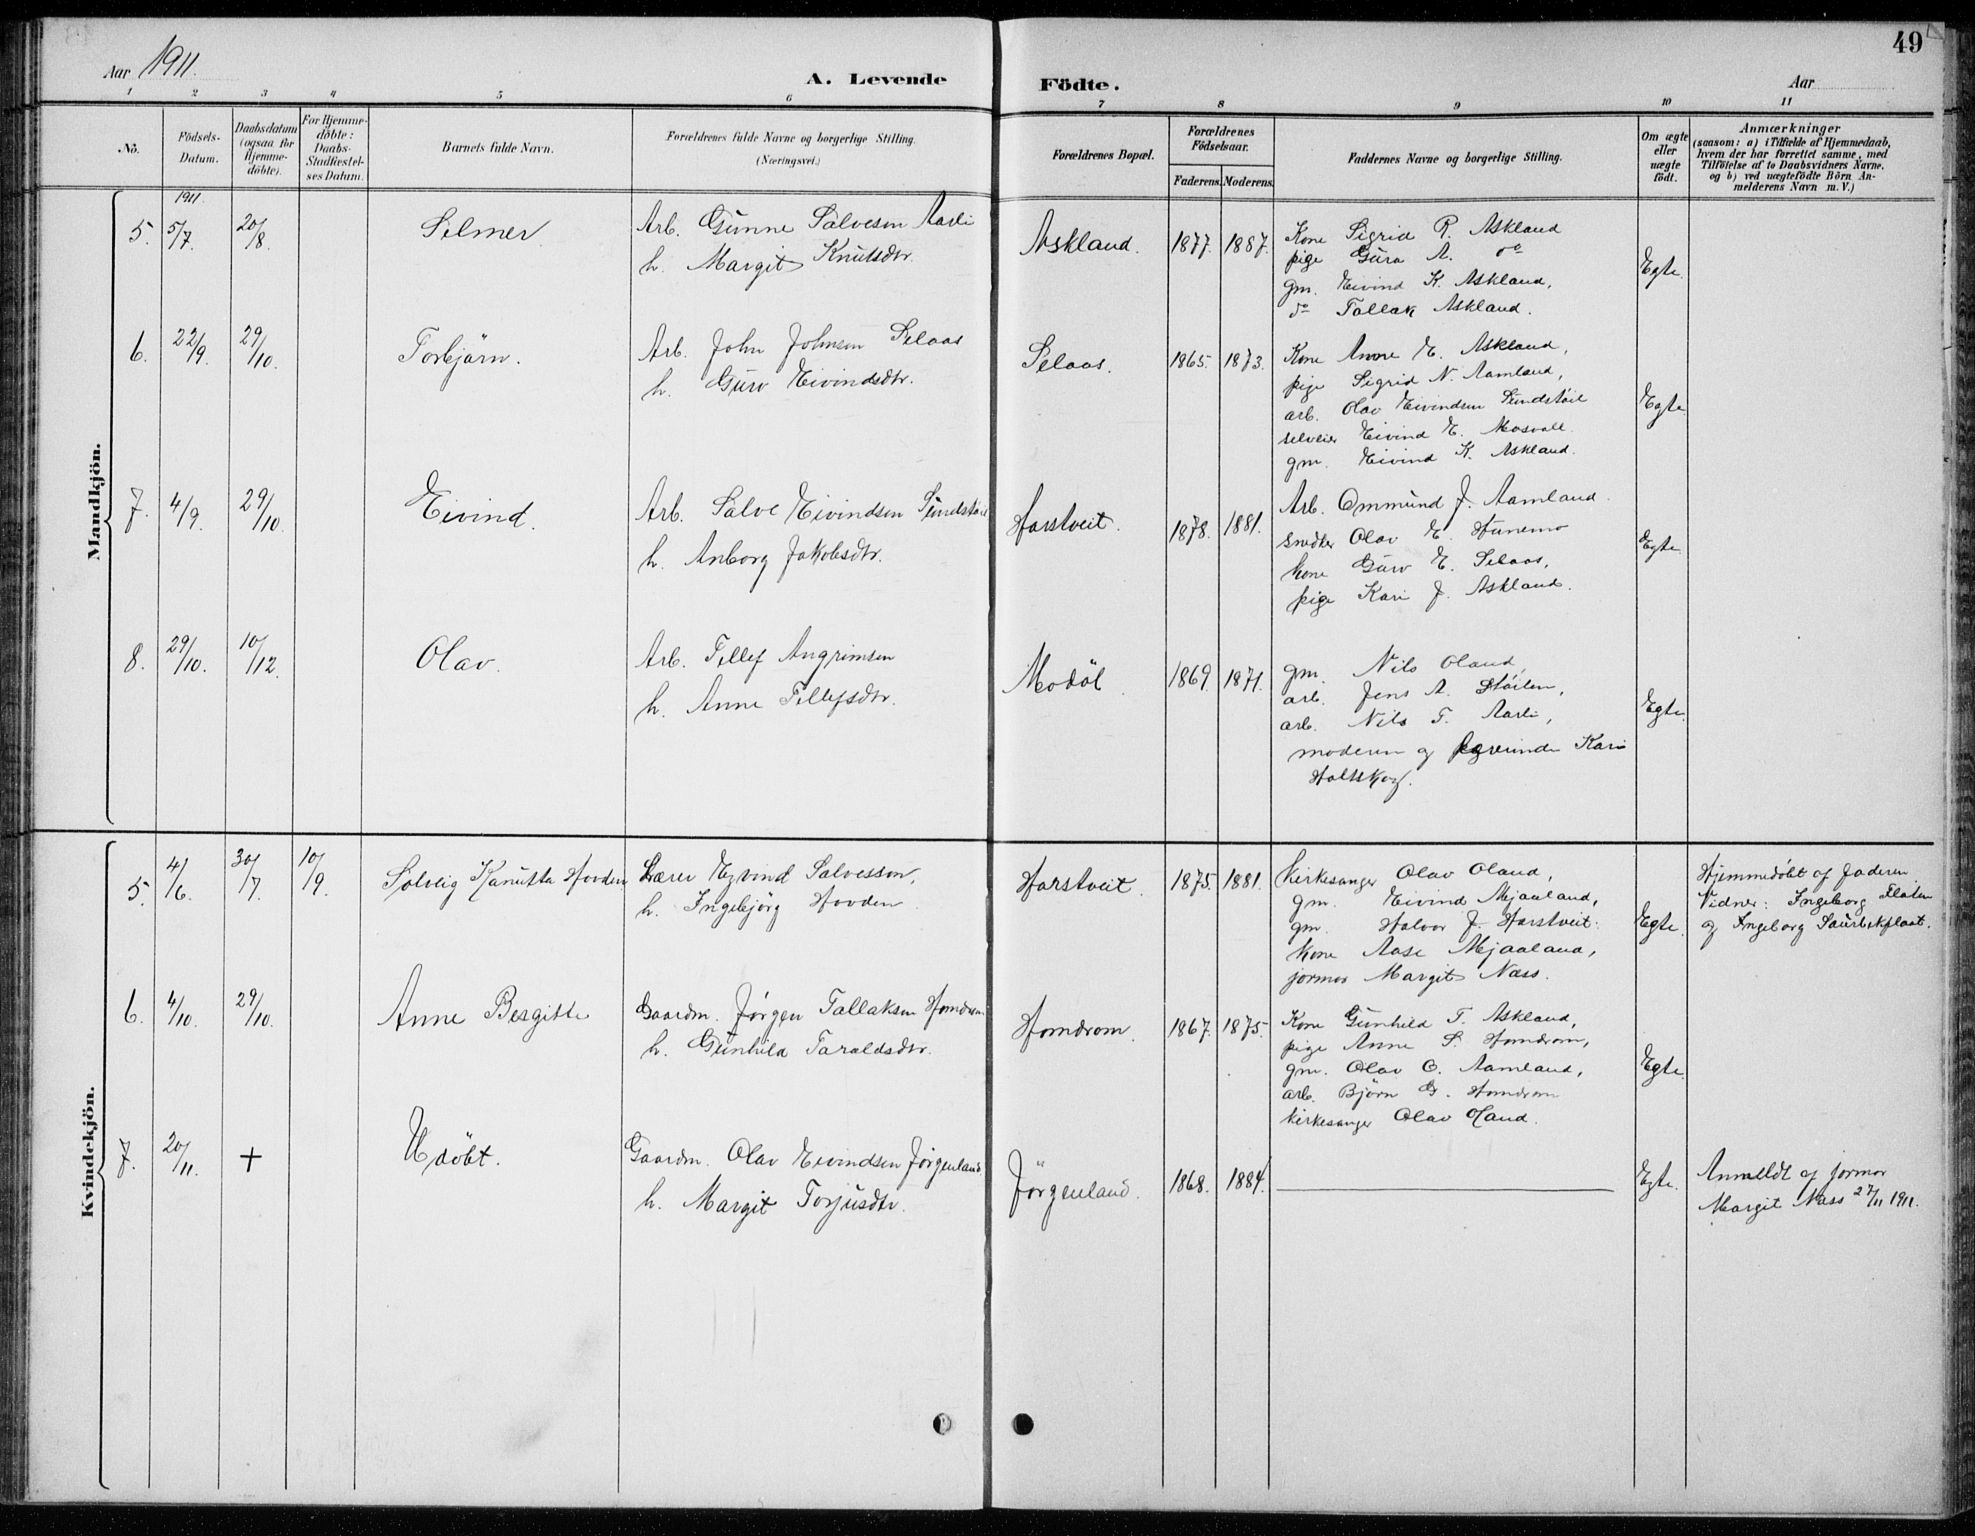 49
Aar 1911.
A. Levende Födte.
Aar
1 2 3 4 5 6 7 8 9 10 11
No.
Födsels-Datum.
Daabsdatum (ogsaa for Hjemme-döbte).
For Hjemme-döbte: Daabs-Stadfæstel-ses Datum.
Barnets fulde Navn.
Forældrenes fulde Navne og borgerlige Stilling. (Næringsvei.)
Forældrenes Bopæl.
Forældrenes Födselsaar.
Faderens. Moderens.
Faddernes Navne og borgerlige Stilling.
Om ægte eller uægte födt.
Anmærkninger
(saasom: a) i Tilfælde af Hjemmedaab, hvem der har forrettet samme, med Tilföielse af to Daabsvidners Navne. og b) ved uægtefödte Börn An-melderens Navn m. V.)
Mandkjön.
1911
5. 5/7. 20/8. Selmer. Arb. Gunne Salvesen Aarli
h. Margit Knutsdtr.
Askland. 1877. 1887. Kone Sigrid R. Askland
pige Guro A. do
gm. Eivind K. Askland,
do Tallak Askland.
Egte.
6. 22/9. 29/10. Torbjörn. Arb. John Johnsen Selaas
h. Guro Eivindsdtr.
Selaas. 1865. 1873. Kone Anne E. Askland,
pige Sigrid N. Aamland,
arb. Olav Eivindsen Sundstöil
selveier Eivind E. Mosvall.
gm. Eivind K. Askland.
Egte.
7. 4/9. 29/10. Eivind. Arb. Salve Eivindsen Sundstöil
h. Anborg Jakobsdtr.
Harstveit. 1878. 1881. Arb. Ommund J. Aamland.
snedker Olav E. Hunemo
kone Guro E. Selaas,
pige Kari J. Askland.
Egte.
8. 29/10. 10/12. Olav. Arb. Tellef Angrimsen
h. Anne Tellefsdtr.
Modöl. 1869. 1871. gm. Nils Oland,
arb. Jens A. Stöilen,
arb. Nils T. Aarli,
moderen og Kari
Holtskog.
Egte.
Kvindekjön.
5. 4/6. 30/7. 10/9. Solveig Kanutta Hovden Lærer Eyvind Salvesson,
h. Ingebjörg Hovden
Harstveit. 1875. 1881. Kirkesanger Olav Oland,
gm. Eivind Mjaaland,
gm. Halvor J. Harstveit.
kone Aase Mjaaland,
jormor Margit Næss.
Egte. Hjemmedöbt af faderen
Vidner: Ingeborg Flaten
og Ingeborg Saurbekflaat.
6. 4/10. 29/10. Anne Bergitte Gaardm. Jörgen Tallaksen Homdrom
h. Gunhild Taraldsdtr.
Homdrom. 1867. 1875. Kone Gunhild T. Askland,
pige Anne S. Homdrom,
gm. Olav O. Aamland,
arb. Björn G. Homdrom
Kirkesanger Olav Oland.
Egte.
7. 20/11. + Udöbt. Gaardm. Olav Eivindsen Jörgenland
h. Margit Torjusdtr.
Jörgenland. 1868. 1884. Egte. Anmeldt af jormor
Margit Næss 27/11 1911.